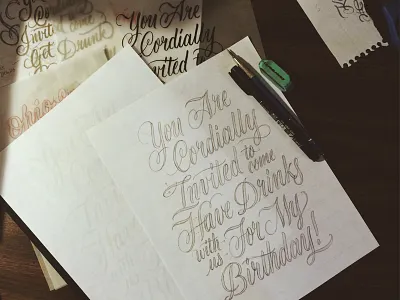 Invited to
Get Drunk
You Are
Cordially
Invited to
You Are
Cordially
Invited to come
Have Drinks
with us For My
Birthday!